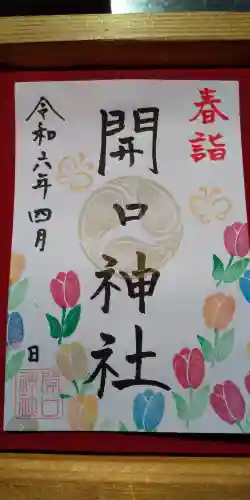 春詣
開口神社
令和六年四月
日
開口
神社